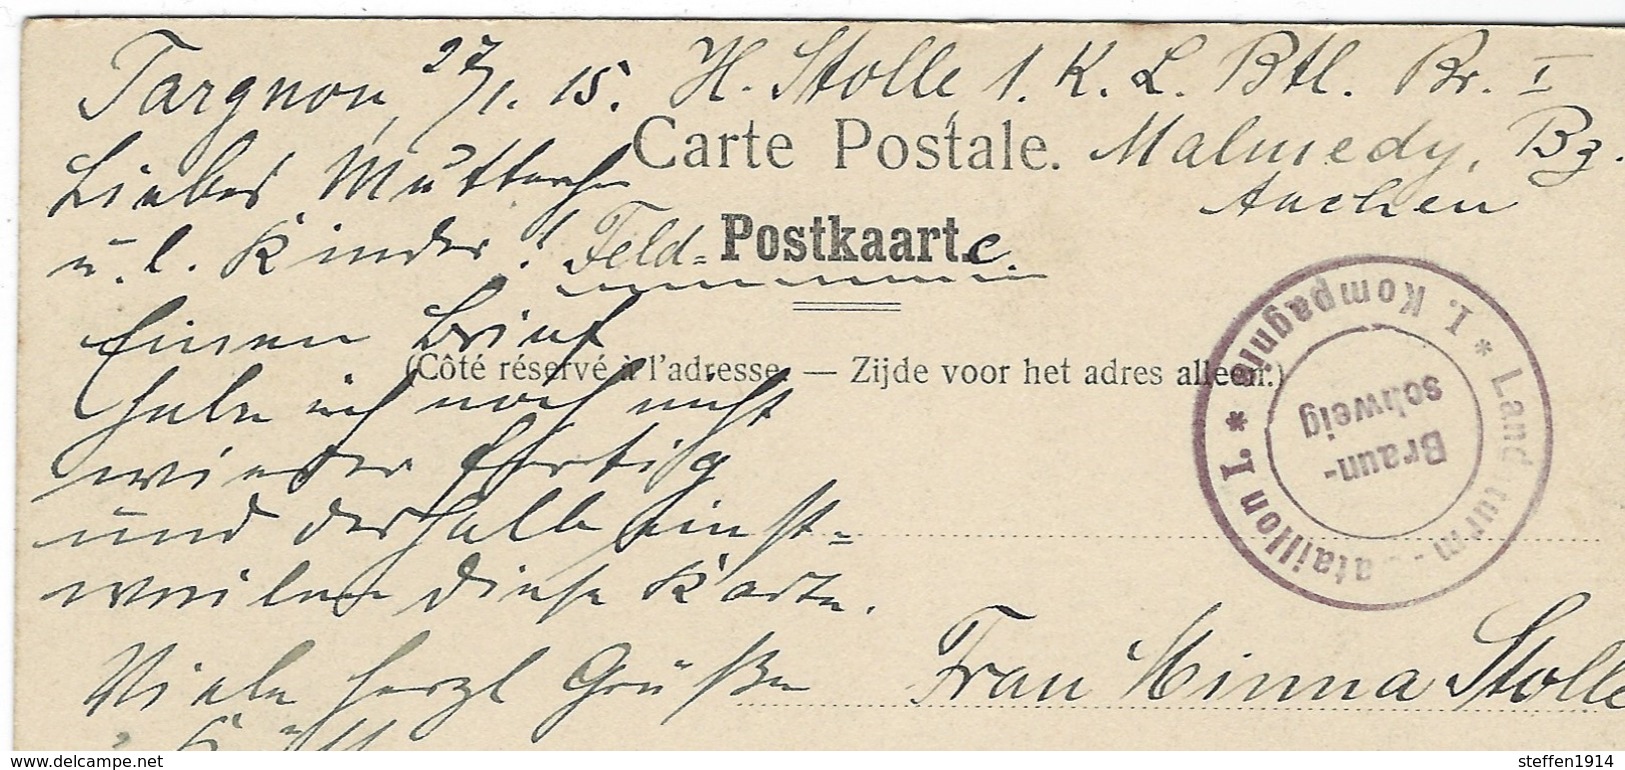 Targnon, 27/1. 15. H. Stolle 1. K. L. Btl. Br. I
Carte Postale. Malmedy, Bz.
Aachen
Liebes Mutterchen
u. l. Kinder! Feld= Postkaarte.
Einen Brief
(Côté réservé à l'adresse. — Zijde voor het adres alleen.)
habe ich noch nicht
wieder fertig
und deshalb einst=
weilen diese Karte.
Viele herzl Grüße
Frau Minna Stolle
* Landsturm-Bataillon I * I. Kompagnie
Braun-
schweig
delcampe.net
steffen1914